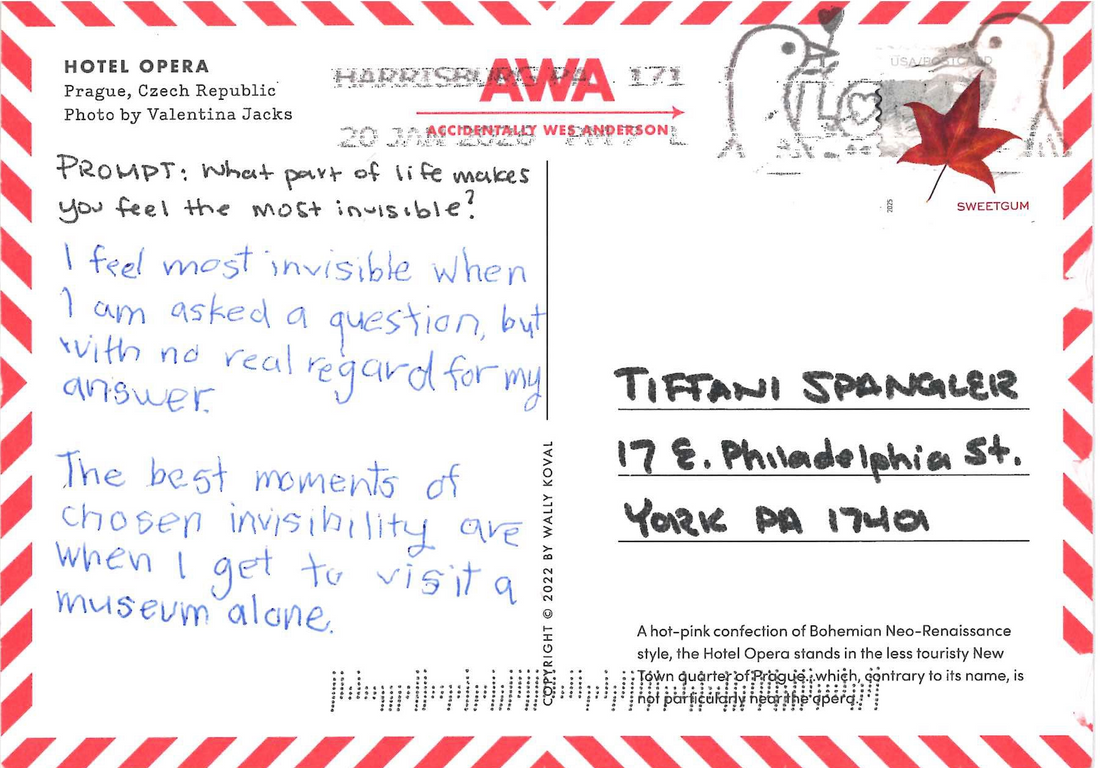 HOTEL OPERA
Prague, Czech Republic
Photo by Valentina Jacks
HARRISBURG PA 171
20 JAN 2026 PM L
AWA
ACCIDENTALLY WES ANDERSON
USA/POSTCARD
2025
SWEETGUM
PROMPT: What part of life makes
you feel the most invisible?
I feel most invisible when
I am asked a question, but
with no real regard for my
answer.
The best moments of
chosen invisibility are
when I get to visit a
museum alone.
COPYRIGHT © 2022 BY WALLY KOVAL
TIFFANI SPANGLER
17 E. Philadelphia St.
YORK PA 17401
A hot-pink confection of Bohemian Neo-Renaissance
style, the Hotel Opera stands in the less touristy New
Town quarter of Prague, which, contrary to its name, is
not particularly near the opera.